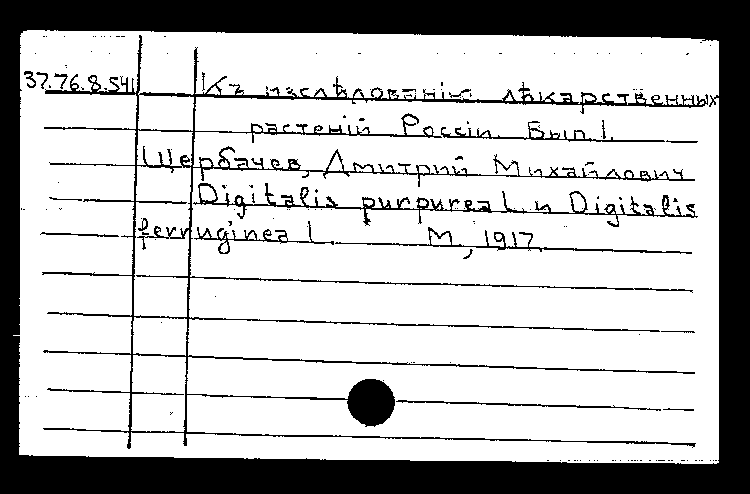 37.76.8.541 Къ изслѣдованію лѣкарственныхъ
растенiй Россiи. Вып. 1.
Щербачев, Дмитрий Михайлович
Digitalis purpurea L. и Digitalis
ferruginea L. М., 1917.